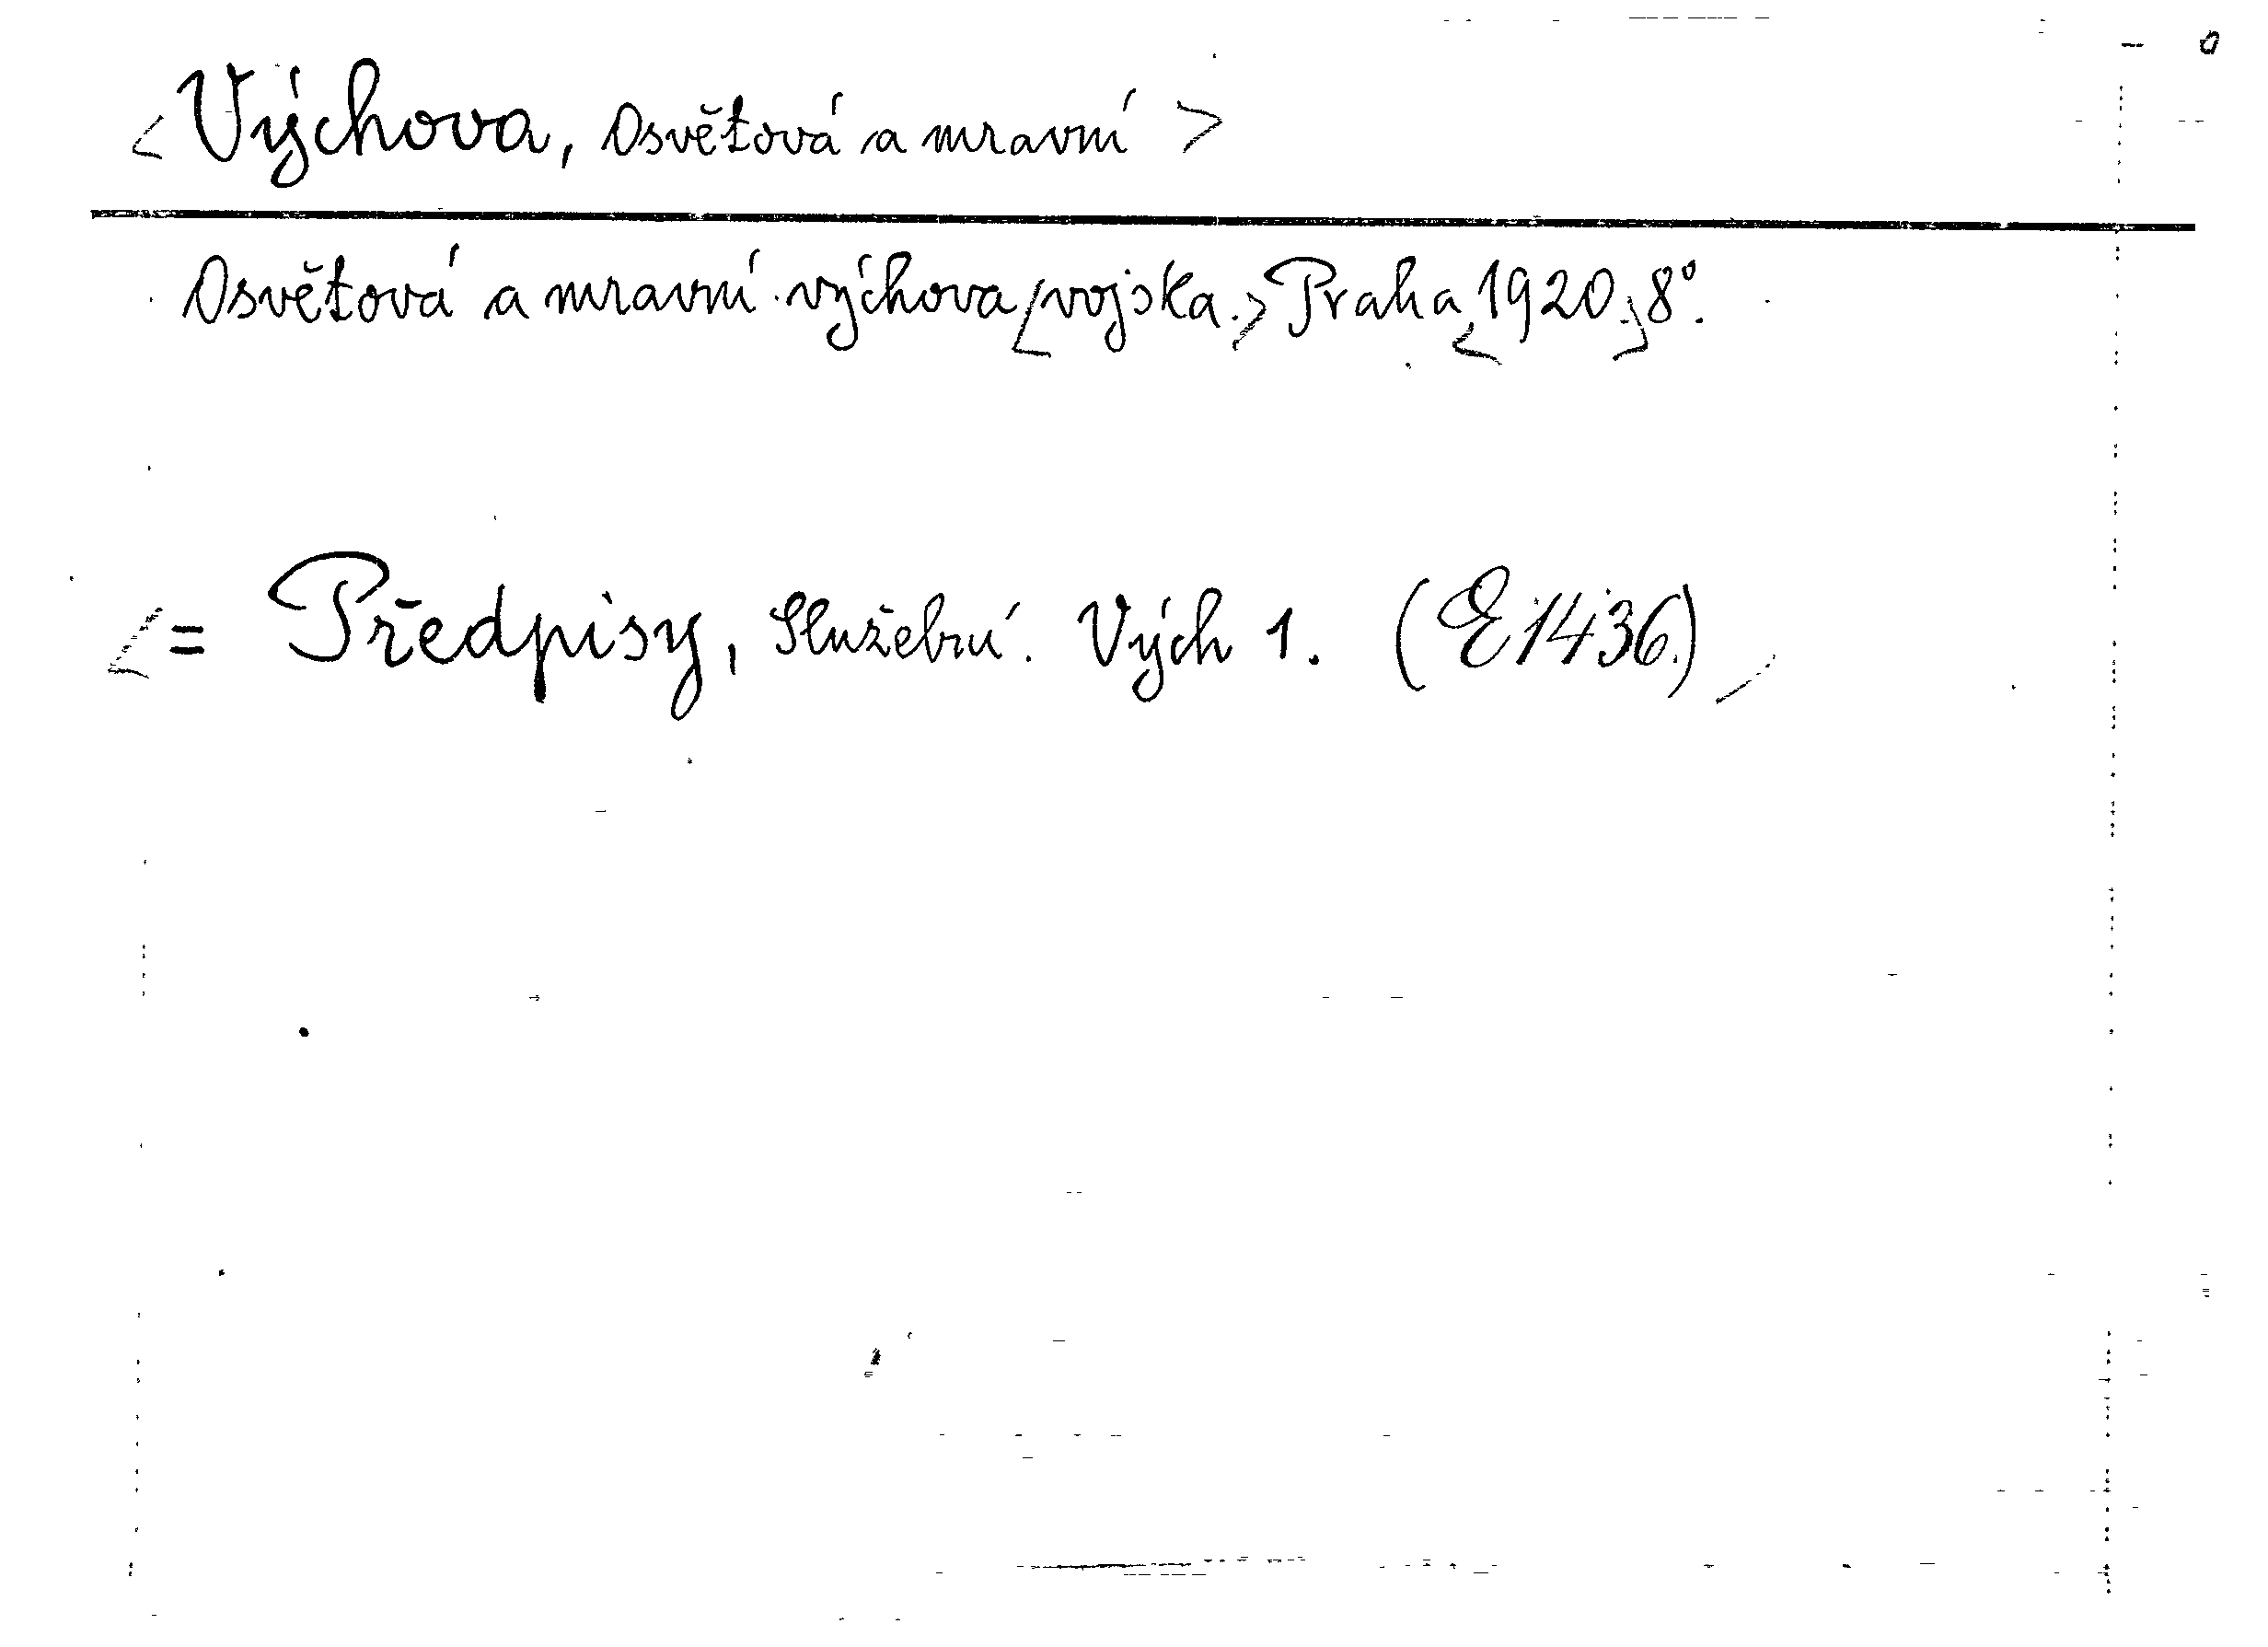 <Výchova, Osvětová a mravní>
Osvětová a mravní výchova <vojska.> Praha <1920.> 8°.
<= Předpisy, Služební. Vých 1. (E1436.)